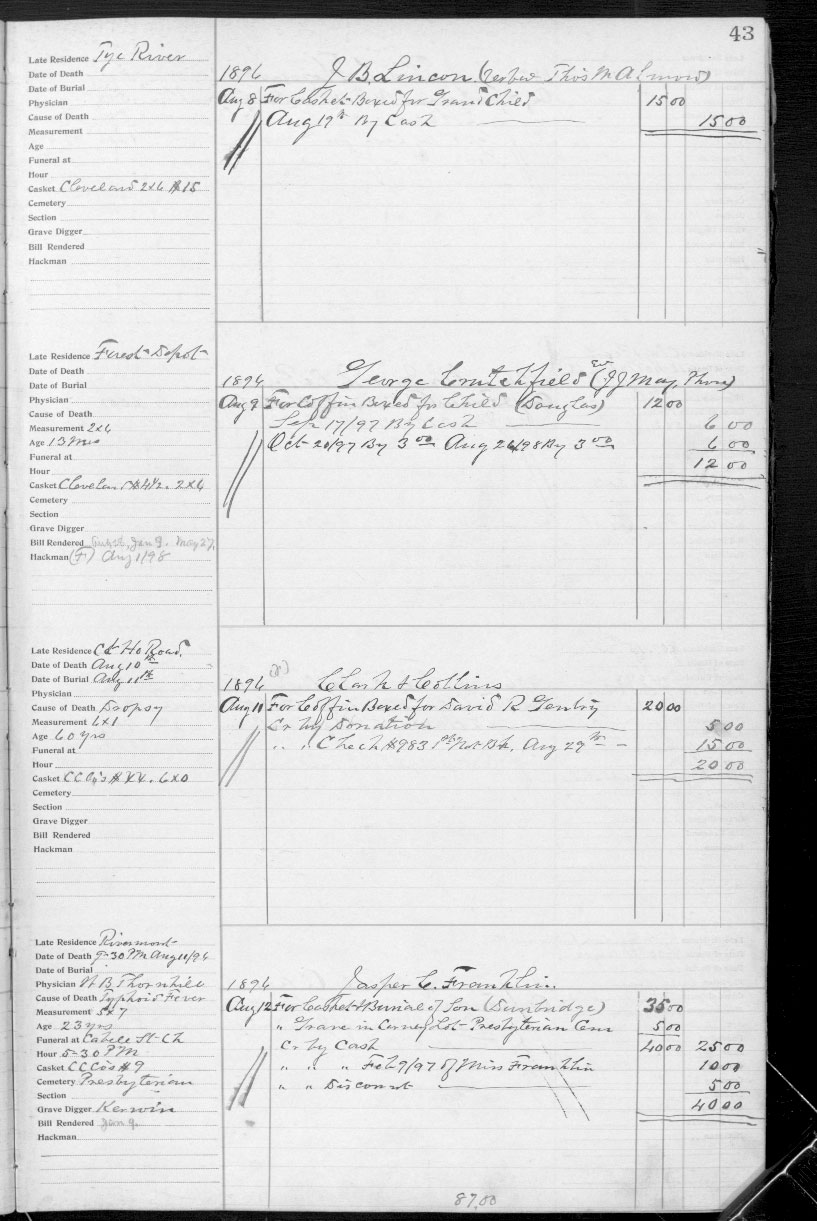 43
Late Residence Tye River
Date of Death
Date of Burial
Physician
Cause of Death
Measurement
Age
Funeral at
Hour
Casket Cleveland 2x6 $15
Cemetery
Section
Grave Digger
Bill Rendered
Hackman
1896 J B Lincon (
Aug 8 For Casket Boxed for Grand Child 15 00
Aug 19th By Cash 15 00
Late Residence Forest Depot
Date of Death
Date of Burial
Physician
Cause of Death
Measurement 2x6
Age 13 Mos
Funeral at
Hour
Casket 2x6
Cemetery
Section
Grave Digger
Bill Rendered Jan 9. May 27,
Hackman (F) Aug 1/98
1896 George Crutchfield (J J May,
Aug 9 For Coffin Boxed for Child (Douglas) 12 00
Sep 17/97 By Cash 6 00
Oct 20/97 By 3 00 Aug 26/98 By 3 00 6 00
12 00
Late Residence Road
Date of Death Aug 10th
Date of Burial Aug 11th
Physician
Cause of Death Dropsy
Measurement 6x1
Age 60 yrs
Funeral at
Hour
Casket C C Co's 6x0
Cemetery
Section
Grave Digger
Bill Rendered
Hackman
1896 Clark & Collins
Aug 11 For Coffin Boxed for David R Gentry 20 00
Cr by Donation 5 00
" " Check $983 Bk. Aug 29th 15 00
20 00
Late Residence Rivermont
Date of Death 9-30 PM Aug 11/96
Date of Burial
Physician W B Thornhill
Cause of Death Typhoid Fever
Measurement 5x7
Age 23 yrs
Funeral at Cabell St Ch
Hour 5-30 PM
Casket C C Co's # 9
Cemetery Presbyterian
Section
Grave Digger Kerwin
Bill Rendered Jan 9.
Hackman
1896 Jasper C. Franklin.
Aug 12 For Casket & Burial of Son (Dunbridge) 35 00
" Grave in Lot Presbyterian Cem 5 00
Cr by Cash 40 00 25 00
" " " Feb 9/97 of Miss Franklin 10 00
" " Discount 5 00
40 00
87.00